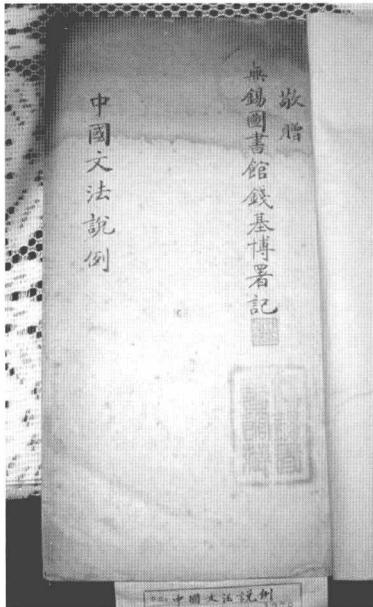 敬贈
無錫圖書館錢基博署記
中國文法說例
中國文法説例